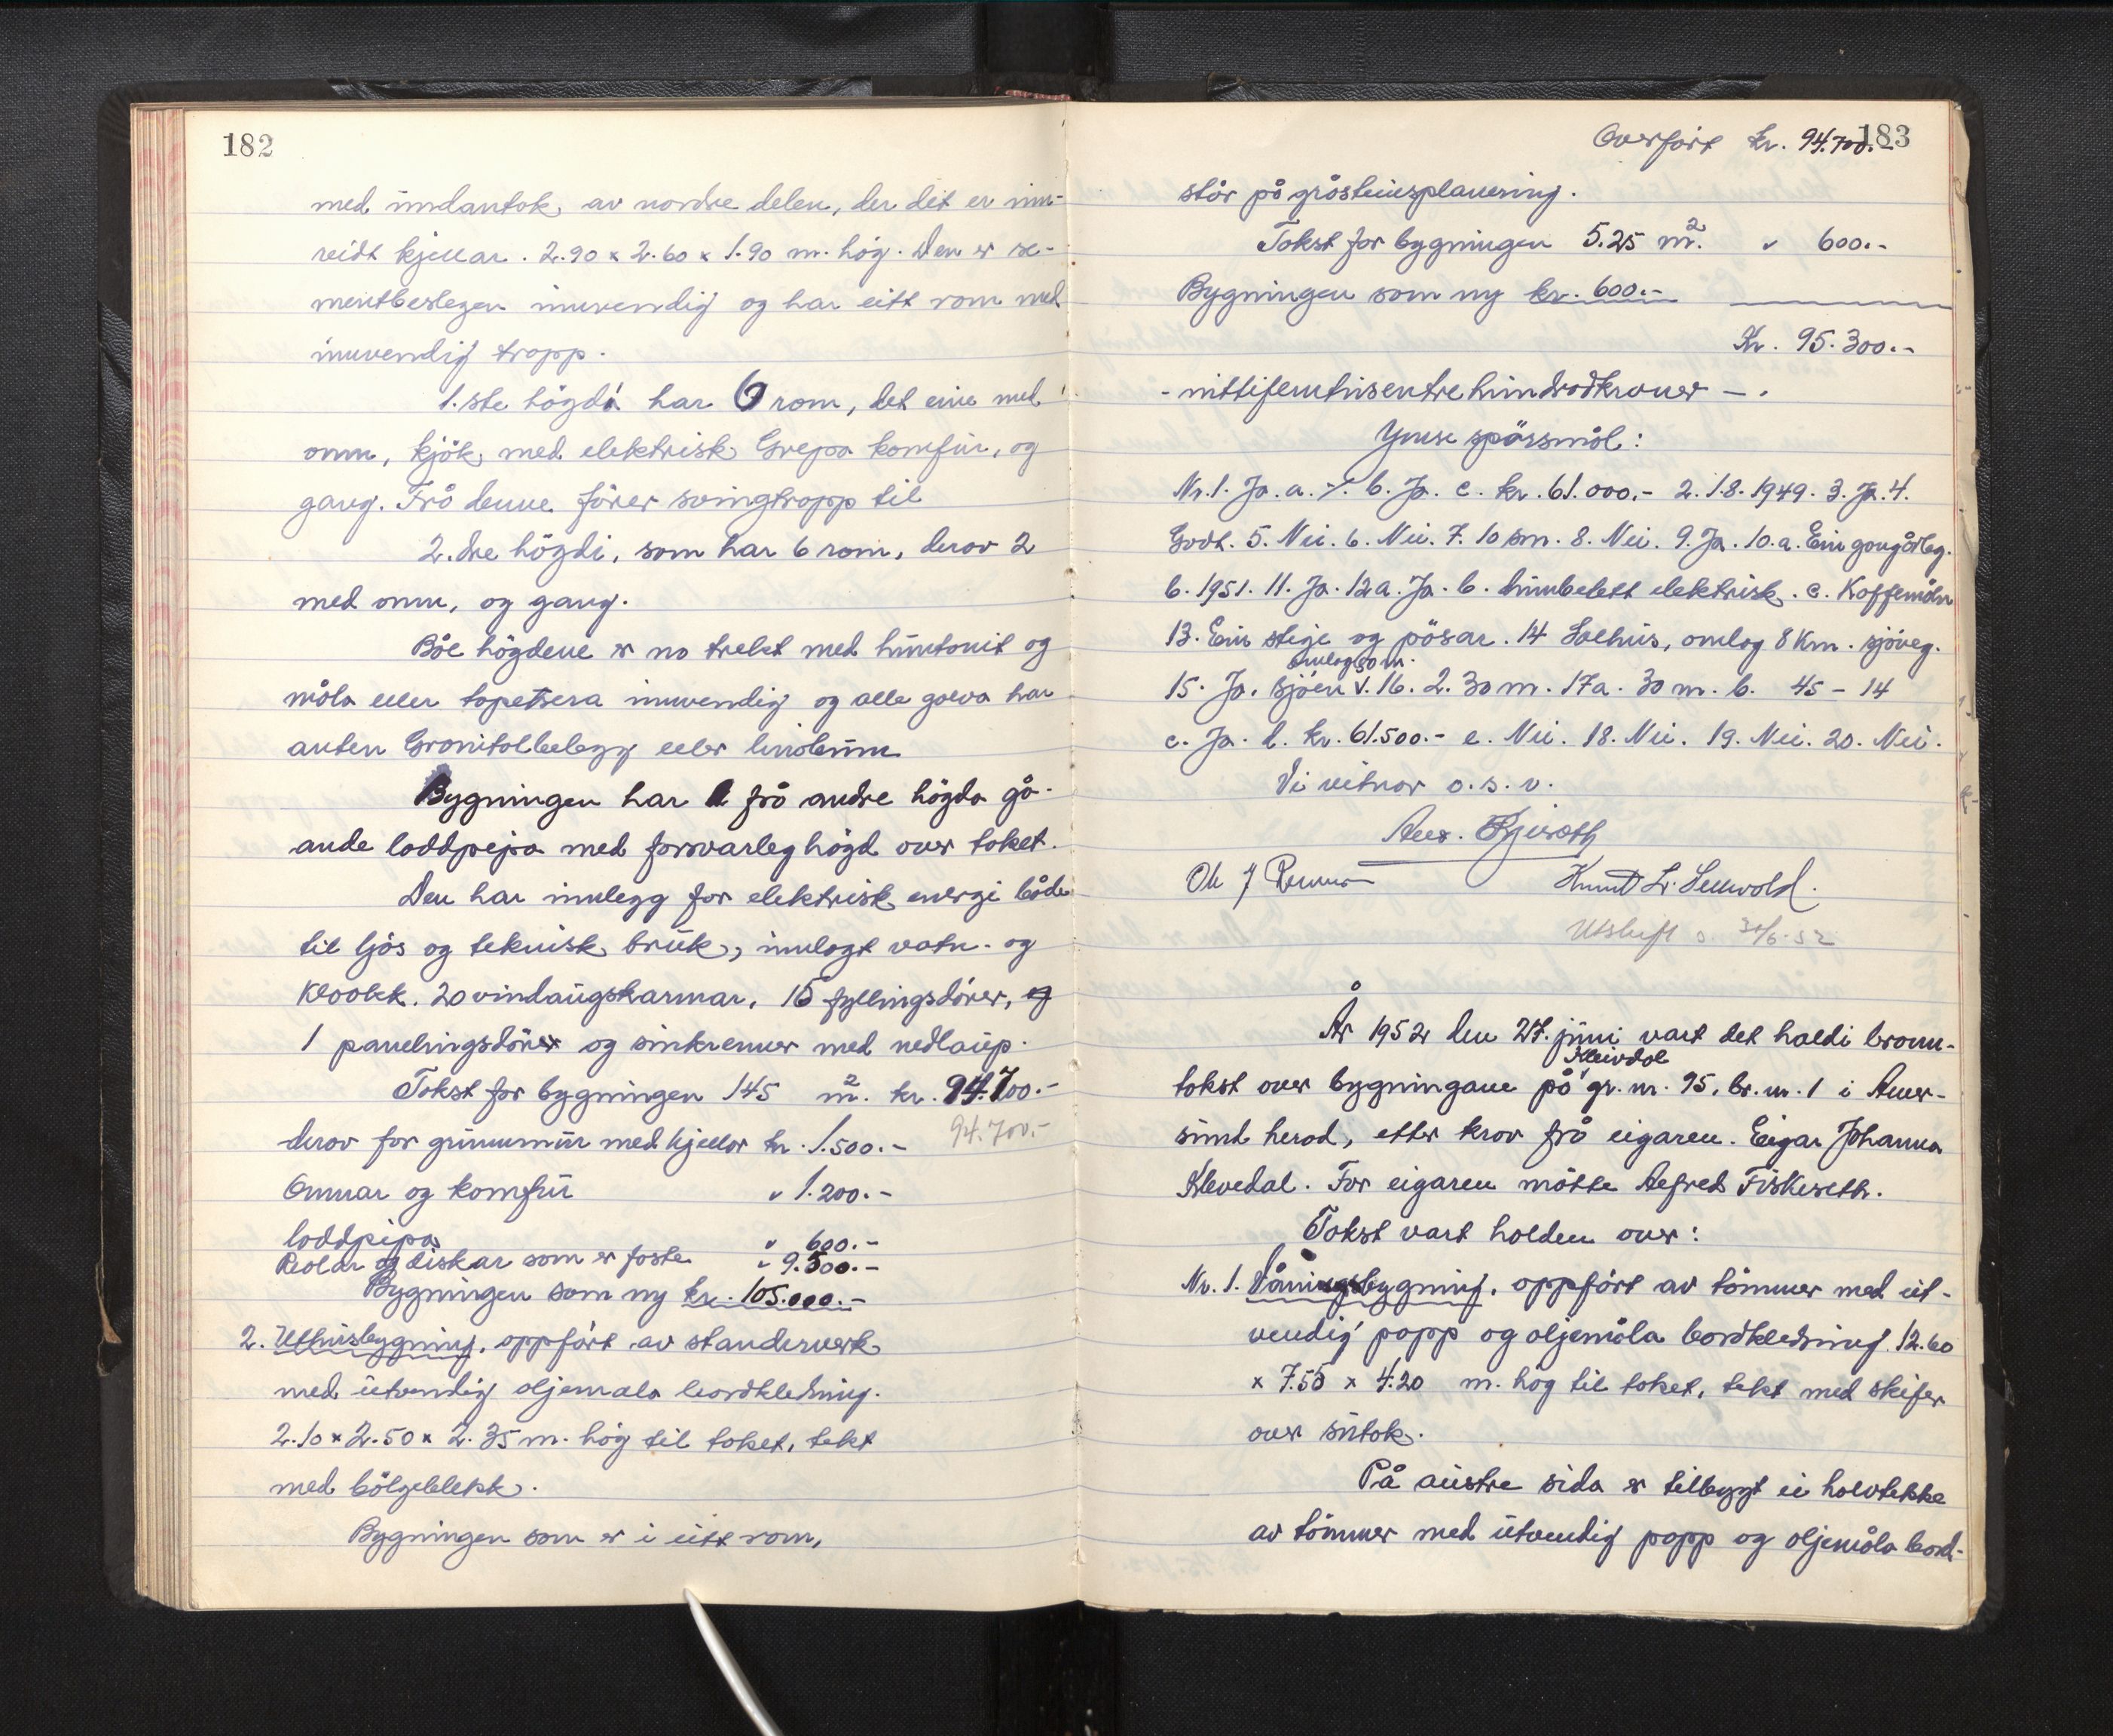 182
med undantak av nordre delen, der det er inn-
reidt kjellar. 2.90 x 2.60 x 1.90 m. høg. Den er se-
mentbeslegen innvendig og har eitt rom med
innvendig trapp.
1.ste högdi har 6 rom, det eine med
omn, kjök med elektrisk Grepa komfür, og
gang. Frå denne förer svingtrapp til
2.dre högdi, som har 6 rom, derav 2
med omn, og gang.
Båe högdene er no trekt med huntonit og
måla eller tapetsera innvendig og alle golva har
anten Granitolbelegg eller linoleum
Bygningen har 1 frå andre högda gå-
ande loddpipa med forsvarleg högd over taket.
Den har innlegg for elektrisk energi både
til ljos og teknisk bruk, innlagt vatn- og
kloakk. 20 vindaugskarmar, 15 fyllingsdörer, og
1 panelingsdörer og sinkrenner med nedlaup.
Takst for bygningen 145 m². kr. 94.700.-
derav for grunnmur med kjellar kr. 1.500.- 94.700.-
Omnar og komfür " 1.200.-
loddpipa " 600.-
Reolar og diskar som er faste " 9.500.-
Bygningen som ny kr. 105.000.-
2. Uthusbygning, oppfört av standerverk
med utvendig oljemala bordkledning.
2.10 x 2.50 x 2.35 m. hög til taket, tekt
med bölgeblekk.
Bygningen som er i eitt rom,
183
Overfört kr. 94.700.-
står på gråsteinsplanering.
Takst for bygningen 5.25 m². " 600.-
Bygningen som ny kr. 600.-
Kr. 95.300.-
- nittifemtusentrehundradkroner - .
Ymse spörsmål:
Nr. 1. Ja. a. -/. b. Ja. c. kr. 61.000.- 2. 1.8.1949. 3. Ja. 4.
Godt. 5. Nei. 6. Nei. 7. 10 sm. 8. Nei. 9. Ja. 10.a. Ein gong årleg.
b. 1951. 11. Ja. 12a. Ja. b. elektrisk. c. Kaffemöln
13. Ein stige og pösar. 14 omlag 8 Km. sjöveg.
omlag 30 m.
15. Ja. sjöen v. 16. 2. 30 m. 17a. 30 m. b. 45 - 14
c. Ja. d. kr. 61.500.- e. Nei. 18. Nei. 19. Nei. 20. Nei.
Vi vitnar o.s.v.
Knut L.
30/6-52
År 1952 den 27. juni vart det haldi brann-
Kleivdal
takst over bygningane på gr. nr. 95, br. nr. 1 i Aver-
sund herad, etter krav frå eigaren. Eigar Johanna
Klevedal. For eigaren mötte Alfred Fiskeseth.
Takst vart halden over:
Nr. 1. Våningsbygning, oppfört av tömmer med ut-
vendig papp og oljemåla bordkledning. 12.60
x 7.55 x 4.20 m. hög til taket, tekt med skifer
over sutak.
På austre sida er tilbygt ei halvtekke
av tömmer med utvendig papp og oljemåla bord-